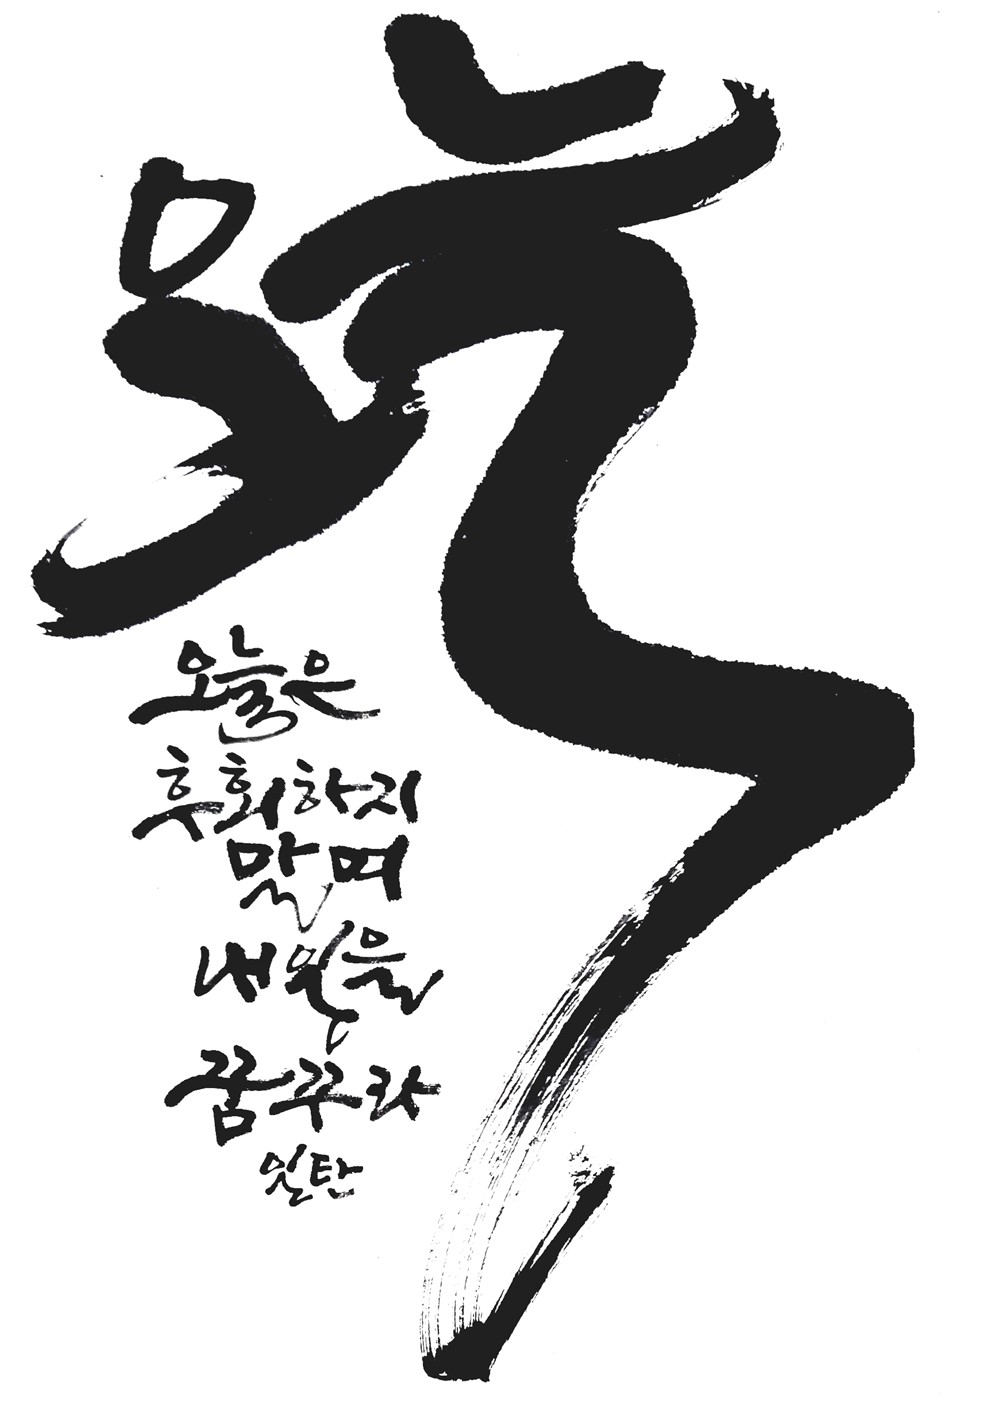 오늘
오늘은
후회하지
말며
내일을
꿈꾸라
일탄